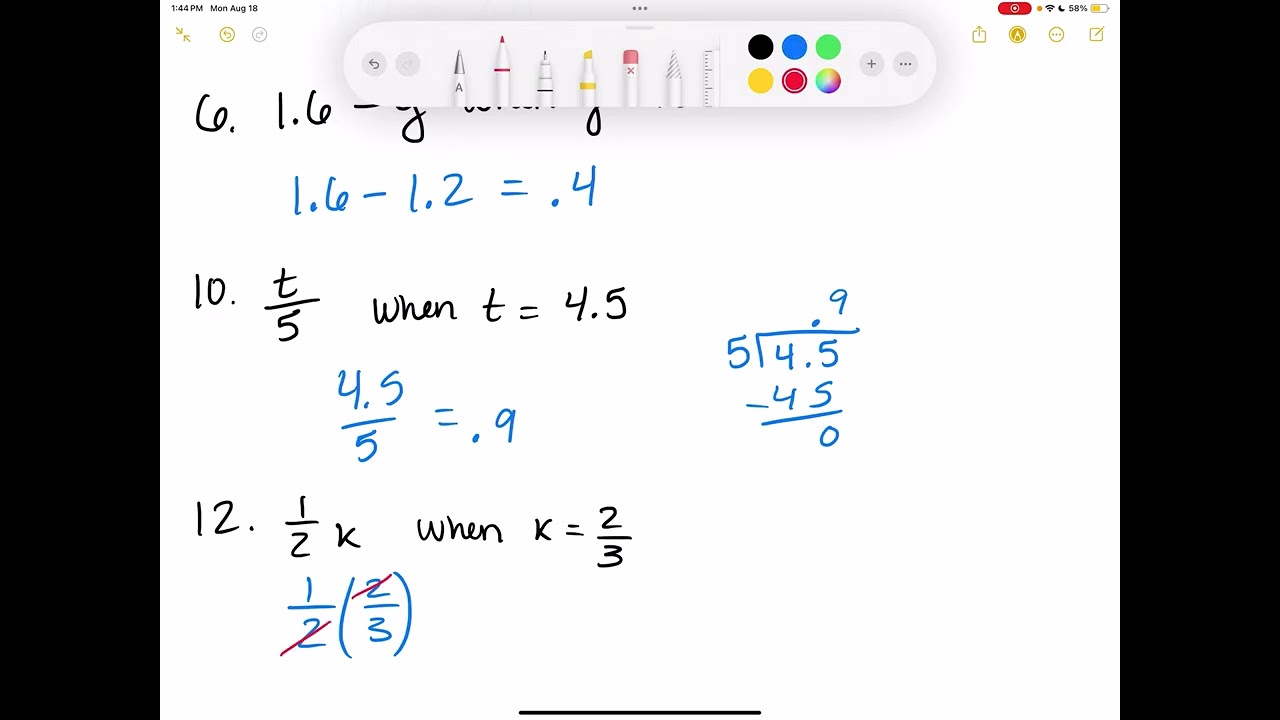 1:44 PM Mon Aug 18
58%
A
6. 1.6 - y when y
1.6 - 1.2 = .4
10. t/5 when t = 4.5
4.5/5 = .9
.9
5 4.5
-45
0
12. 1/2 k when k = 2/3
1/2 (2/3)